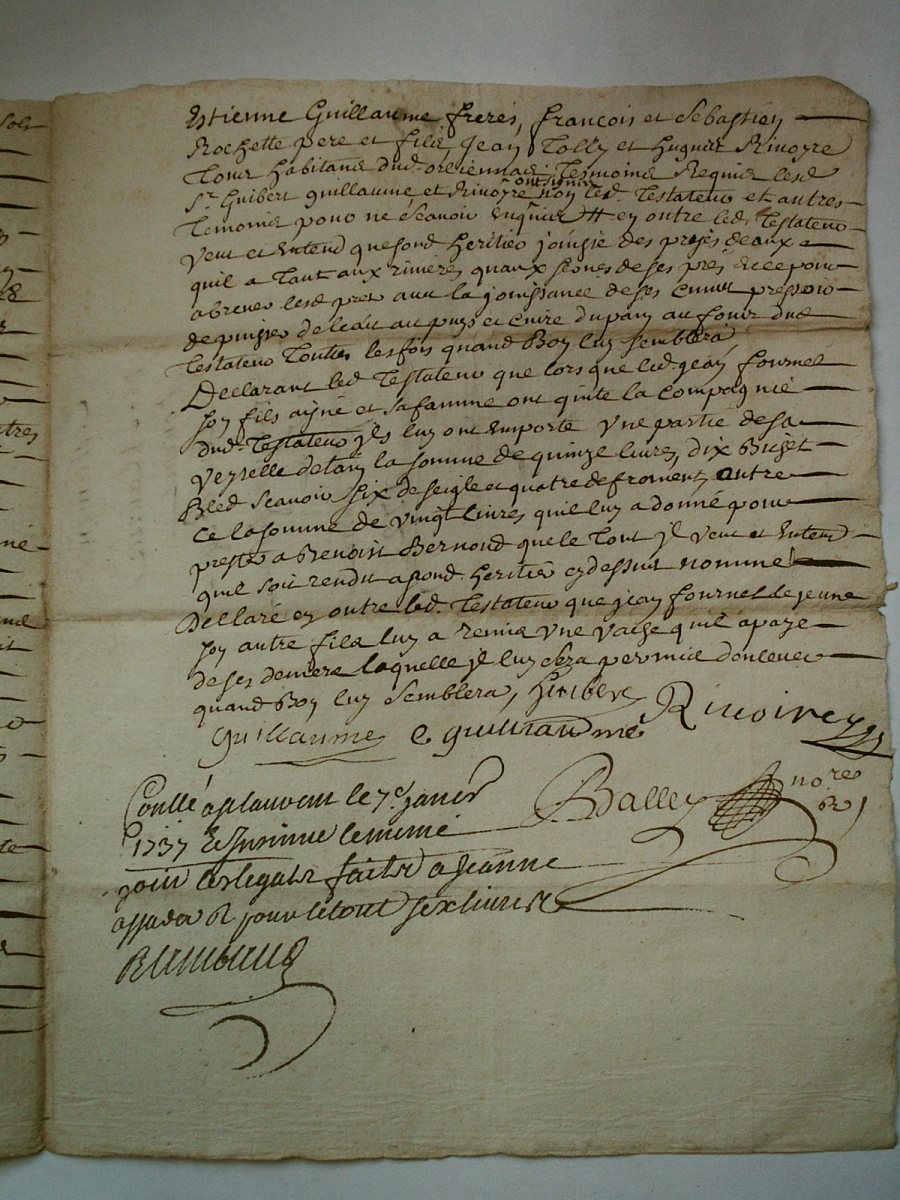 Estienne Guillaume freres, francois et Sebastien
Rochette pere et filz Jean Tolly et hugues Rivoyre
Tous habitans dud. orliennas Tesmoins Requis lesd
Sr. Guibert guillaume et Rivoyre ont signé non led. Testateur et autres
Temoins pour ne scavoir enquis # en outre led. Testateur
Veut et entend que sond heritier jouisse des de aux
quil a Tant aux rivieres quaux de ses pres
abreuer lesd pres avec la jouissance de ses pressoir
de puiser de leau au puys et cuire du pain au four dud
Testateur Toutes les fois quand Bon luy semblera
Declarant led Testateur que lors que led jean fournel
son fils ayné et sa famme ont quité la compagnie
dud. Testateur jls luy ont emporté une partie de sa
veyselle detain la somme de quinze livres, dix Bichet
Bled scavoir six de seigle et quatre de froment, outre
ce la somme de vingt livres quil luy a donné pour
prester a Benoist Bernond que le Tout jl veut et entend
quil soit rendu a sond heritier cy dessus nommé
Declare en outre led. Testateur que jean fournel le jeune
son autre fils luy a remis une vache quil a paye
de ses deniers laquelle jl luy sera permis denlever
quand Bon luy semblera, Guibert
guillaume e guillaume Rivoirey
Conllé a st laurent le 7e janer Balley nore
1737 le mesme
pour les legats faits a jeanne
et pour le tout six livres